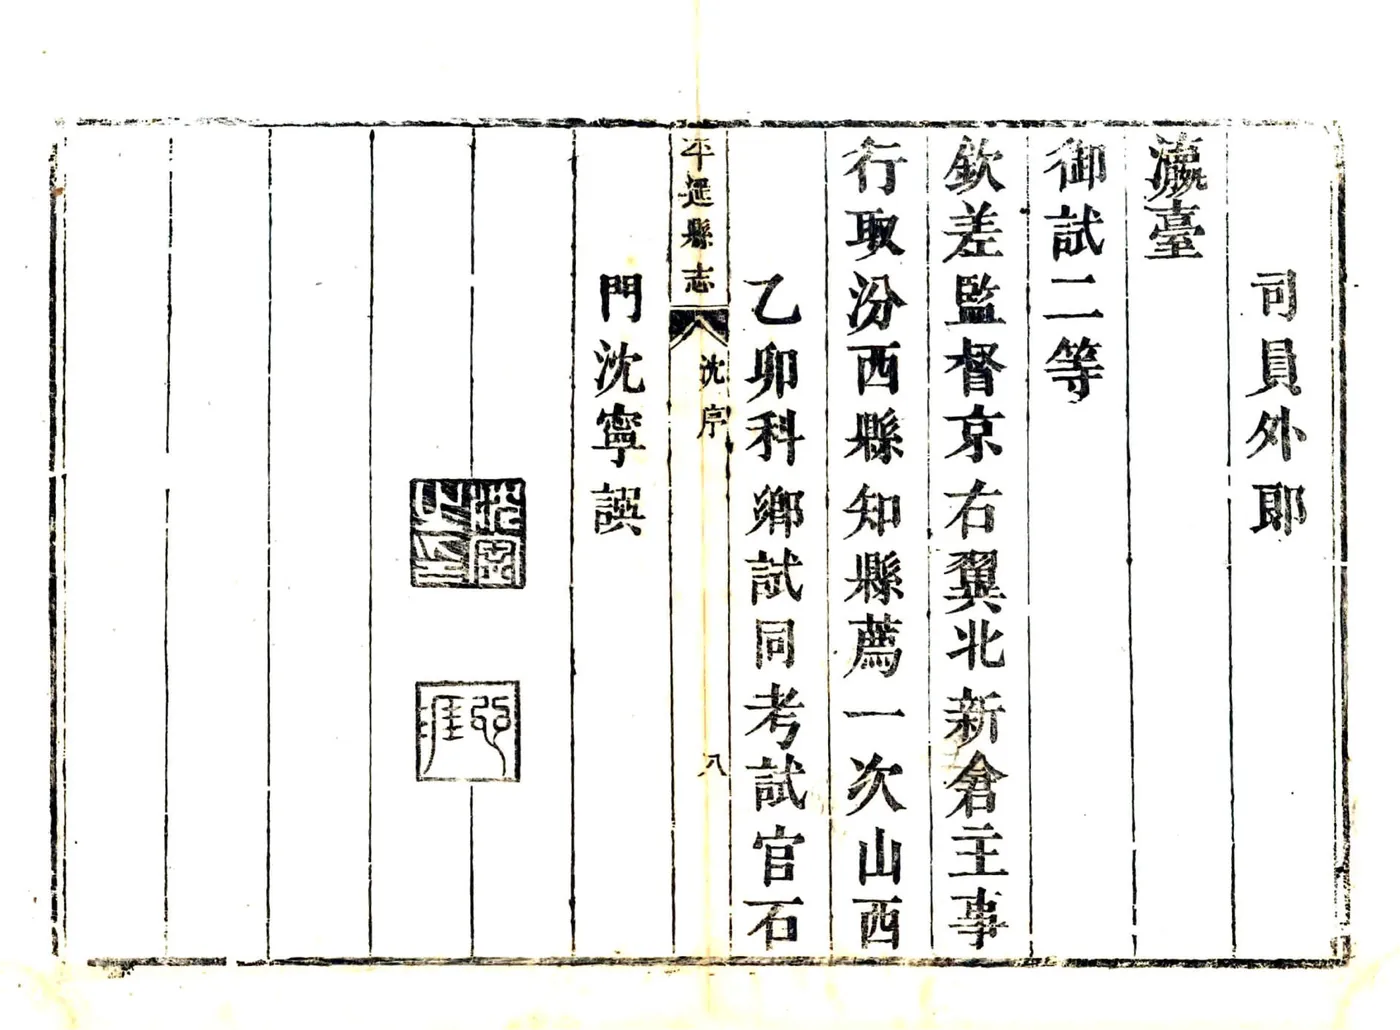 司員外郎
瀛臺
御試二等
欽差監督京右翼北新倉主事
行取汾西縣知縣薦一次山西
乙卯科鄉試同考試官石
平遥縣志
沈序
八
門沈寧譔